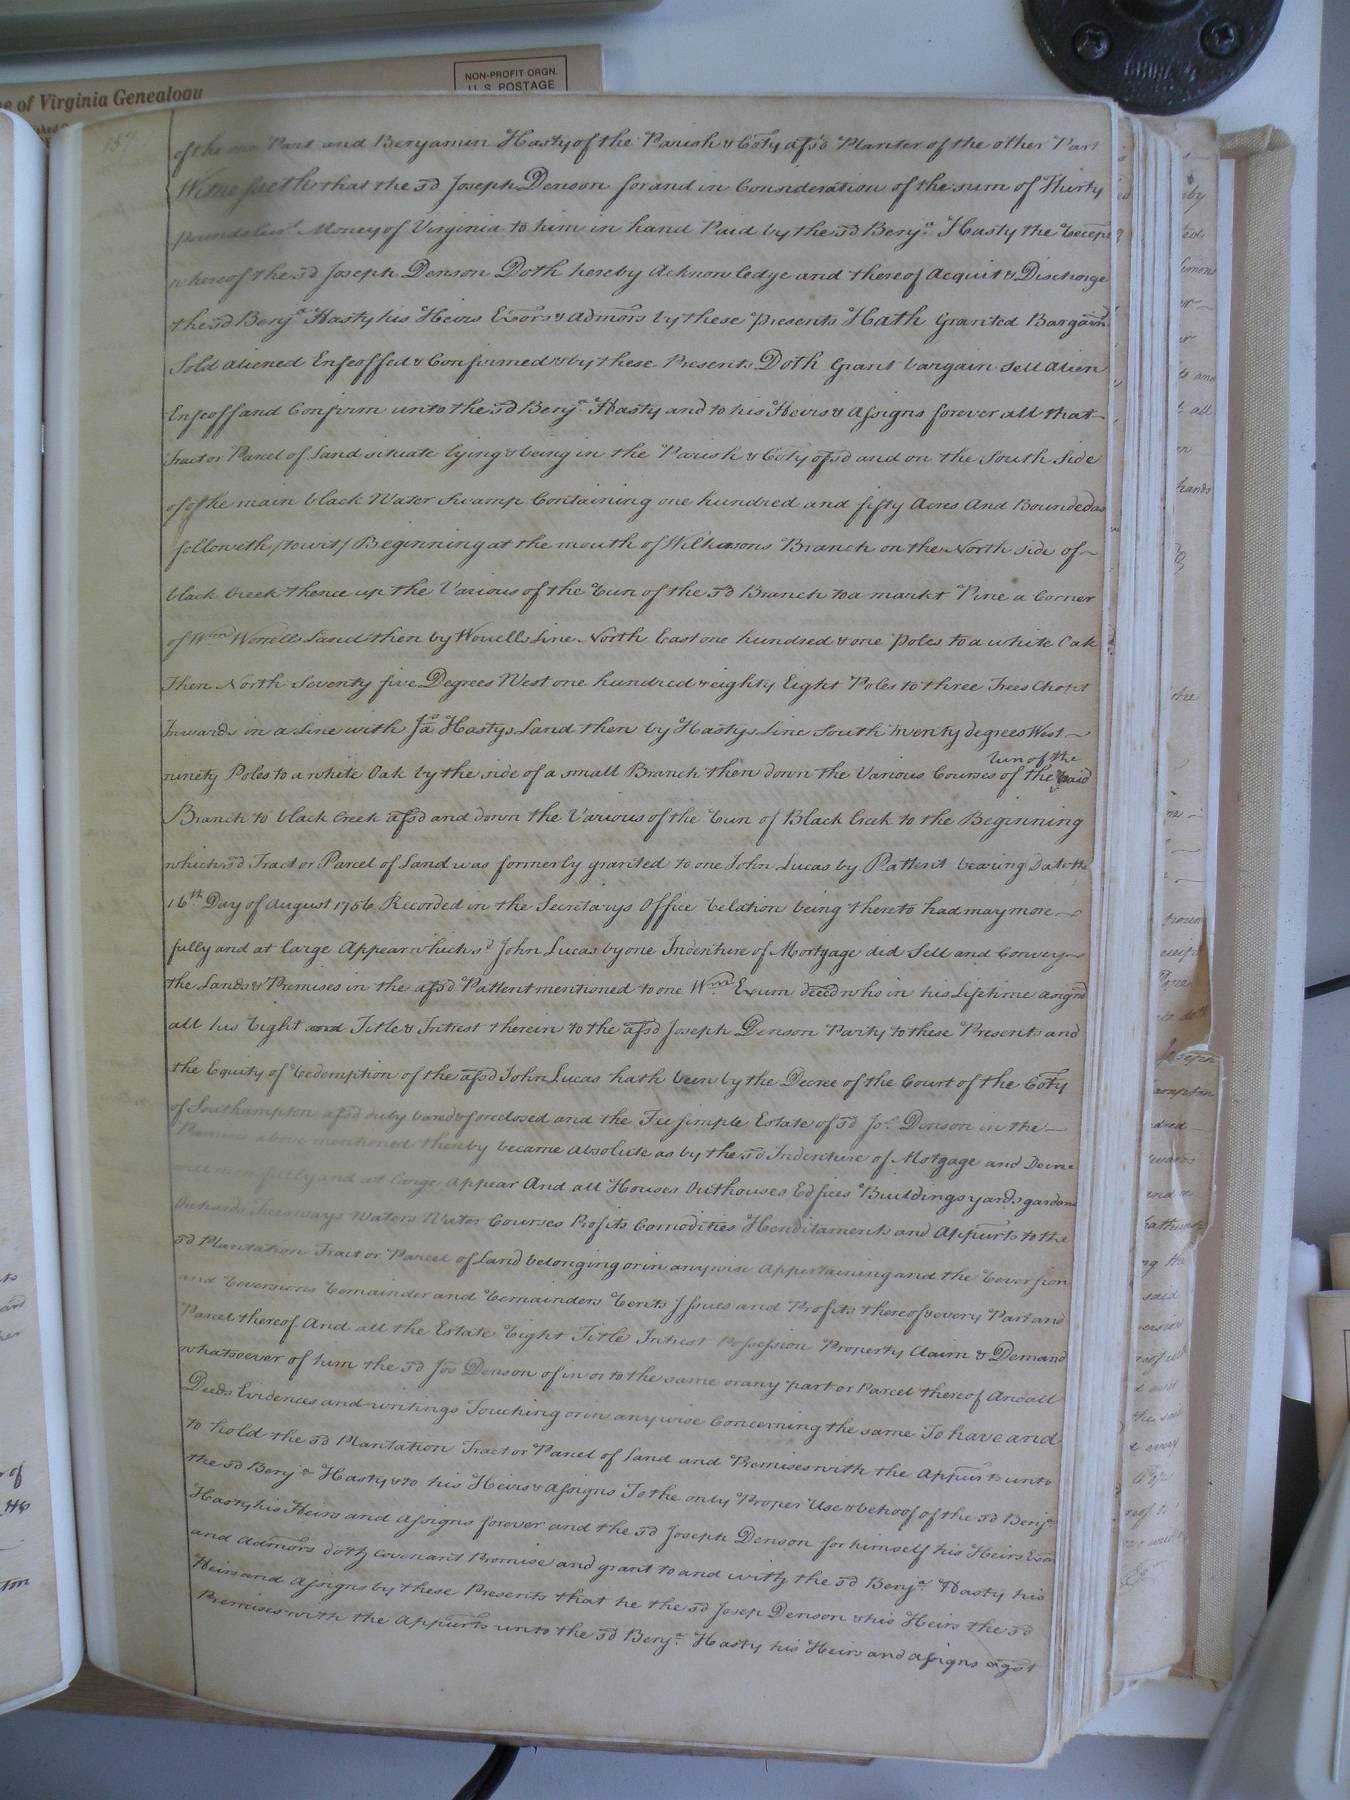 NON-PROFIT ORGN.
U.S. POSTAGE
e of Virginia Genealogy
157
of the one Part and Benjamin Hasty of the Parish & Coty afsd Planter of the other Part
Witnesseth that the sd Joseph Denson for and in Consideration of the sum of Thirty
pounds Curt. Money of Virginia to him in hand Paid by the sd Benja. Hasty the Receipt
whereof the sd Joseph Denson Doth hereby Acknowledge and thereof Acquit & Discharge
the sd Benja Hasty his Heirs Exors & Admors by these presents Hath Granted Bargain
Sold aliened Enfeoffed & Confirmed & by these Presents Doth Grant bargain sell alien
Enfeoff and Confirm unto the sd Benja. Hasty and to his Heirs & Assigns forever all that
Tract or Parcel of Land situate lying & being in the Parish & Coty afsd and on the South Side
of of the main black Water Swamp Containing one hundred and fifty Acres And Bounded as
followeth /towit/ Beginning at the mouth of Wilkasons Branch on the North side of
black Creek thence up the Various of the Run of the sd Branch to a markt Pine a Corner
of Wm Worrells Land then by Worrells Line North East one hundred & one poles to a white Oak
Then North Seventy five Degrees West one hundred & eighty Eight Poles to three Trees Chopt
Inwards in a Line with Jas Hastys Land then by Hastys Line South twenty degrees West
Run of the
ninety Poles to a white Oak by the side of a small Branch then down the Various Courses of the said
Branch to black Creek afsd and down the Various of the Run of Black Creek to the Beginning
which sd Tract or Parcel of Land was formerly granted to one John Lucas by Pattent bearing Date the
16th Day of August 1756 Recorded in the Secretarys Office Relation being thereto had may more
fully and at large Appear which sd John Lucas by one Indenture of Mortgage did Sell and Convey
the Lands & Premises in the afsd Pattent mentioned to one Wm. Exum deced who in his Lifetime asignd
all his Right and Title & Intrest therein to the afsd Joseph Denson Party to these Presents and
the Equity of Redemption of the afsd John Lucas hath been by the Decree of the Court of the Coty
of Southampton afsd duly bared & foreclosed and the Fee Simple Estate of sd Jos. Denson in the
Premises above mentioned thereby became absolute as by the sd Indenture of Motgage and Decree
will fully and at large appear And all Houses Outhouses Edfices Buildings yards gardens
Orchards Trees ways Waters Water Courses Profits Comodities Hereditaments and Appurts to the
sd Plantation Tract or Parcel of Land belonging or in any wise Appertaining and the Reversion
and Reversions Remainder and Remainders Rents Issues and Profits thereof & every Part and
Parcel thereof And all the Estate Right Title Intrest Possession Property Claim & Demand
whatsoever of him the sd Jos Denson of in or to the same or any part or Parcel thereof And all
Deeds Evidences and writings Touching or in any wise Concerning the same To have and
to hold the sd Plantation Tract or Parcel of Land and Premises with the Appurts unto
the sd Benja Hasty & to his Heirs & Assigns To the only Proper Use & behoof of the sd Benja.
Hasty his Heirs and Assigns forever and the sd Joseph Denson for himself his Heirs Exors
and Admors doth covenant Promise and grant to and with the sd Benja. Hasty his
Heirs and Assigns by these Presents that he the sd Josep Denson & his Heirs the sd
Premises with the Appurts unto the sd Benja. Hasty his Heirs and assigns agst